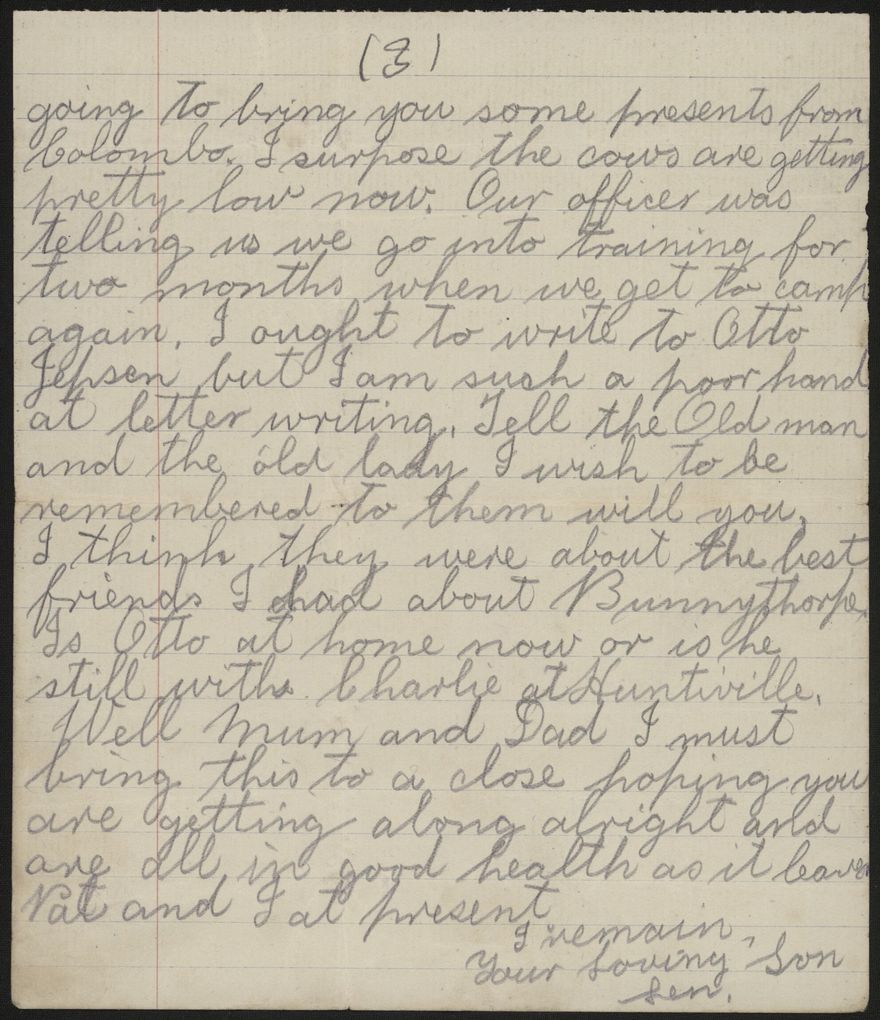 (3)
going to bring you some presents from
Colombo. I surpose the cows are getting
pretty low now. Our officer was
telling us we go into training for
two months when we get to camp
again. I ought to write to Otto
Jepsen but I am such a poor hand
at letter writing. Tell the Old man
and the old lady I wish to be
remembered to them will you.
I think they were about the best
friends I had about Bunnythorpe.
Is Otto at home now or is he
still with Charlie at Huntiville.
Well Mum and Dad I must
bring this to a close hoping you
are getting along alright and
are all in good health as it leaves
Nat and I at present
I remain,
Your Loving Son
Len.